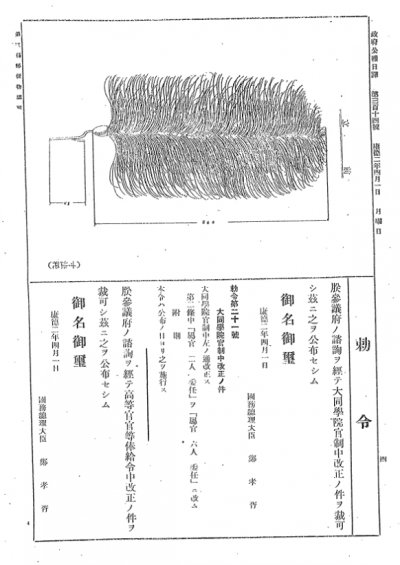 政府公報日譯 第三百十四號 康德二年四月一日 月曜日
四
第三種郵便物認可
勅令
朕參議府ノ諮詢ヲ經テ大同學院官制中改正ノ件ヲ裁可
シ茲ニ之ヲ公布セシム
御名御璽
康德二年四月一日
國務總理大臣 鄭孝胥
勅令第二十一號
大同學院官制中改正ノ件
大同學院官制中左ノ通改正ス
第二條中「屬官 二人 委任」ヲ「屬官 六人 委任」ニ改ム
附則
本令ハ公布ノ日ヨリ之ヲ施行ス
朕參議府ノ諮詢ヲ經テ高等官官等俸給令中改正ノ件ヲ
裁可シ茲ニ之ヲ公布セシム
御名御璽
康德二年四月一日
國務總理大臣 鄭孝胥